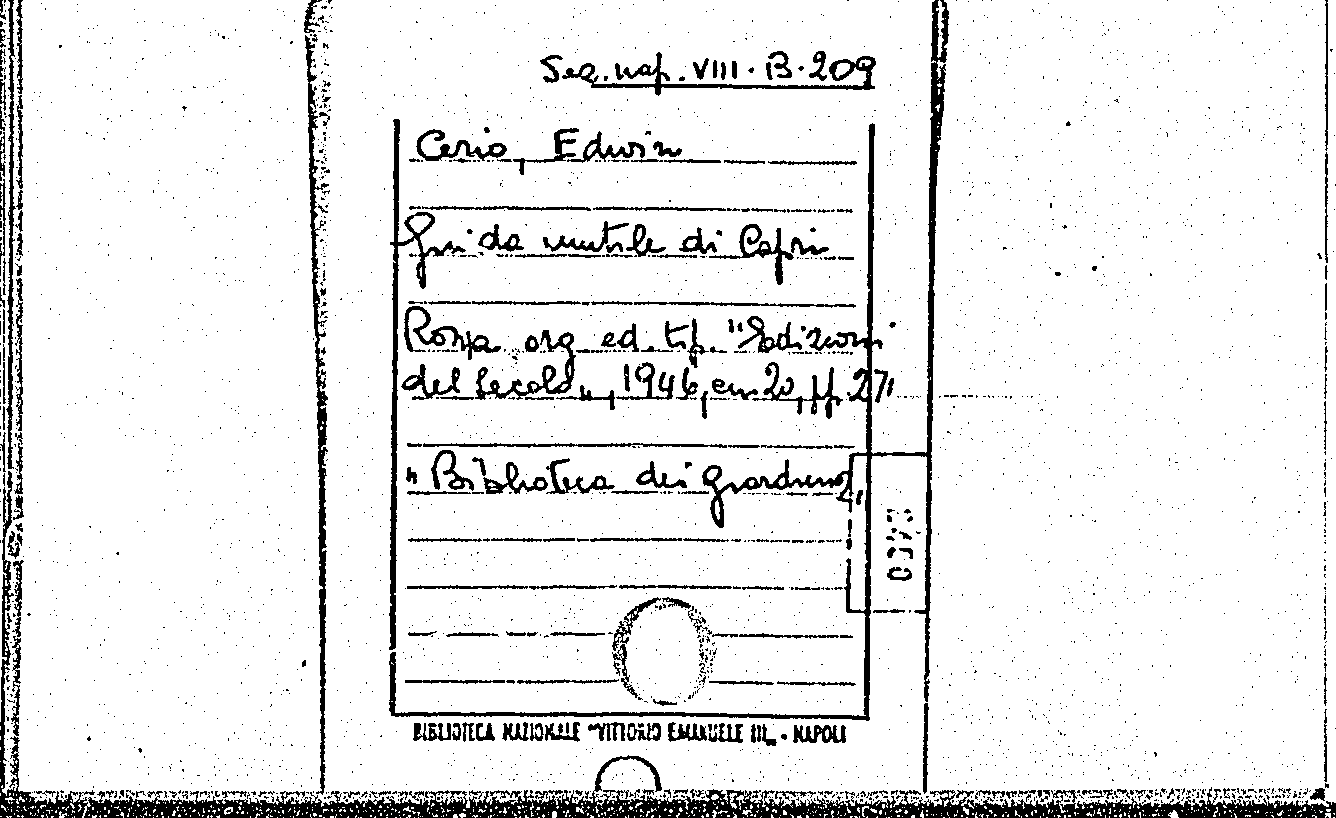 Sez. nap. VIII. B. 209
Cerio, Edwin
Guida inutile di Capri
Roma org. ed. tip. "Edizioni
del secolo", 1946, cm 20, pp. 271
"Biblioteca dei Giardini",
BIBLIOTECA NAZIONALE "VITTORIO EMANUELE III" - NAPOLI